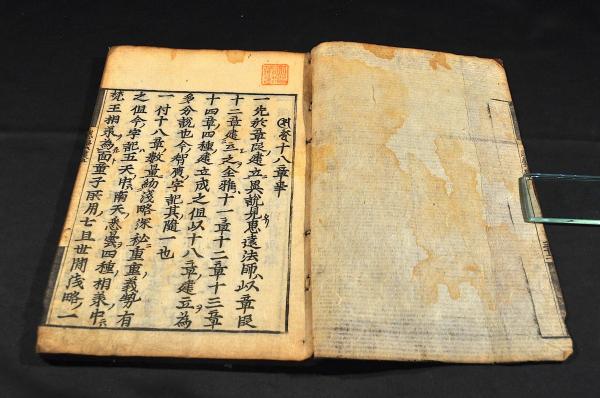 十八章
一先於章段建立異説見惠遠法師以章段
十二章建立之全雅十一章十二章十三章
十四章四種建立成之但以十八章建立為
多分説也今智廣字記其隨一也
一付十八章數量幼淺略深秘重重義勢有
之但今字記五天中南天悉曇四種相承中
梵王相承為面童子所用也且世間浅略一